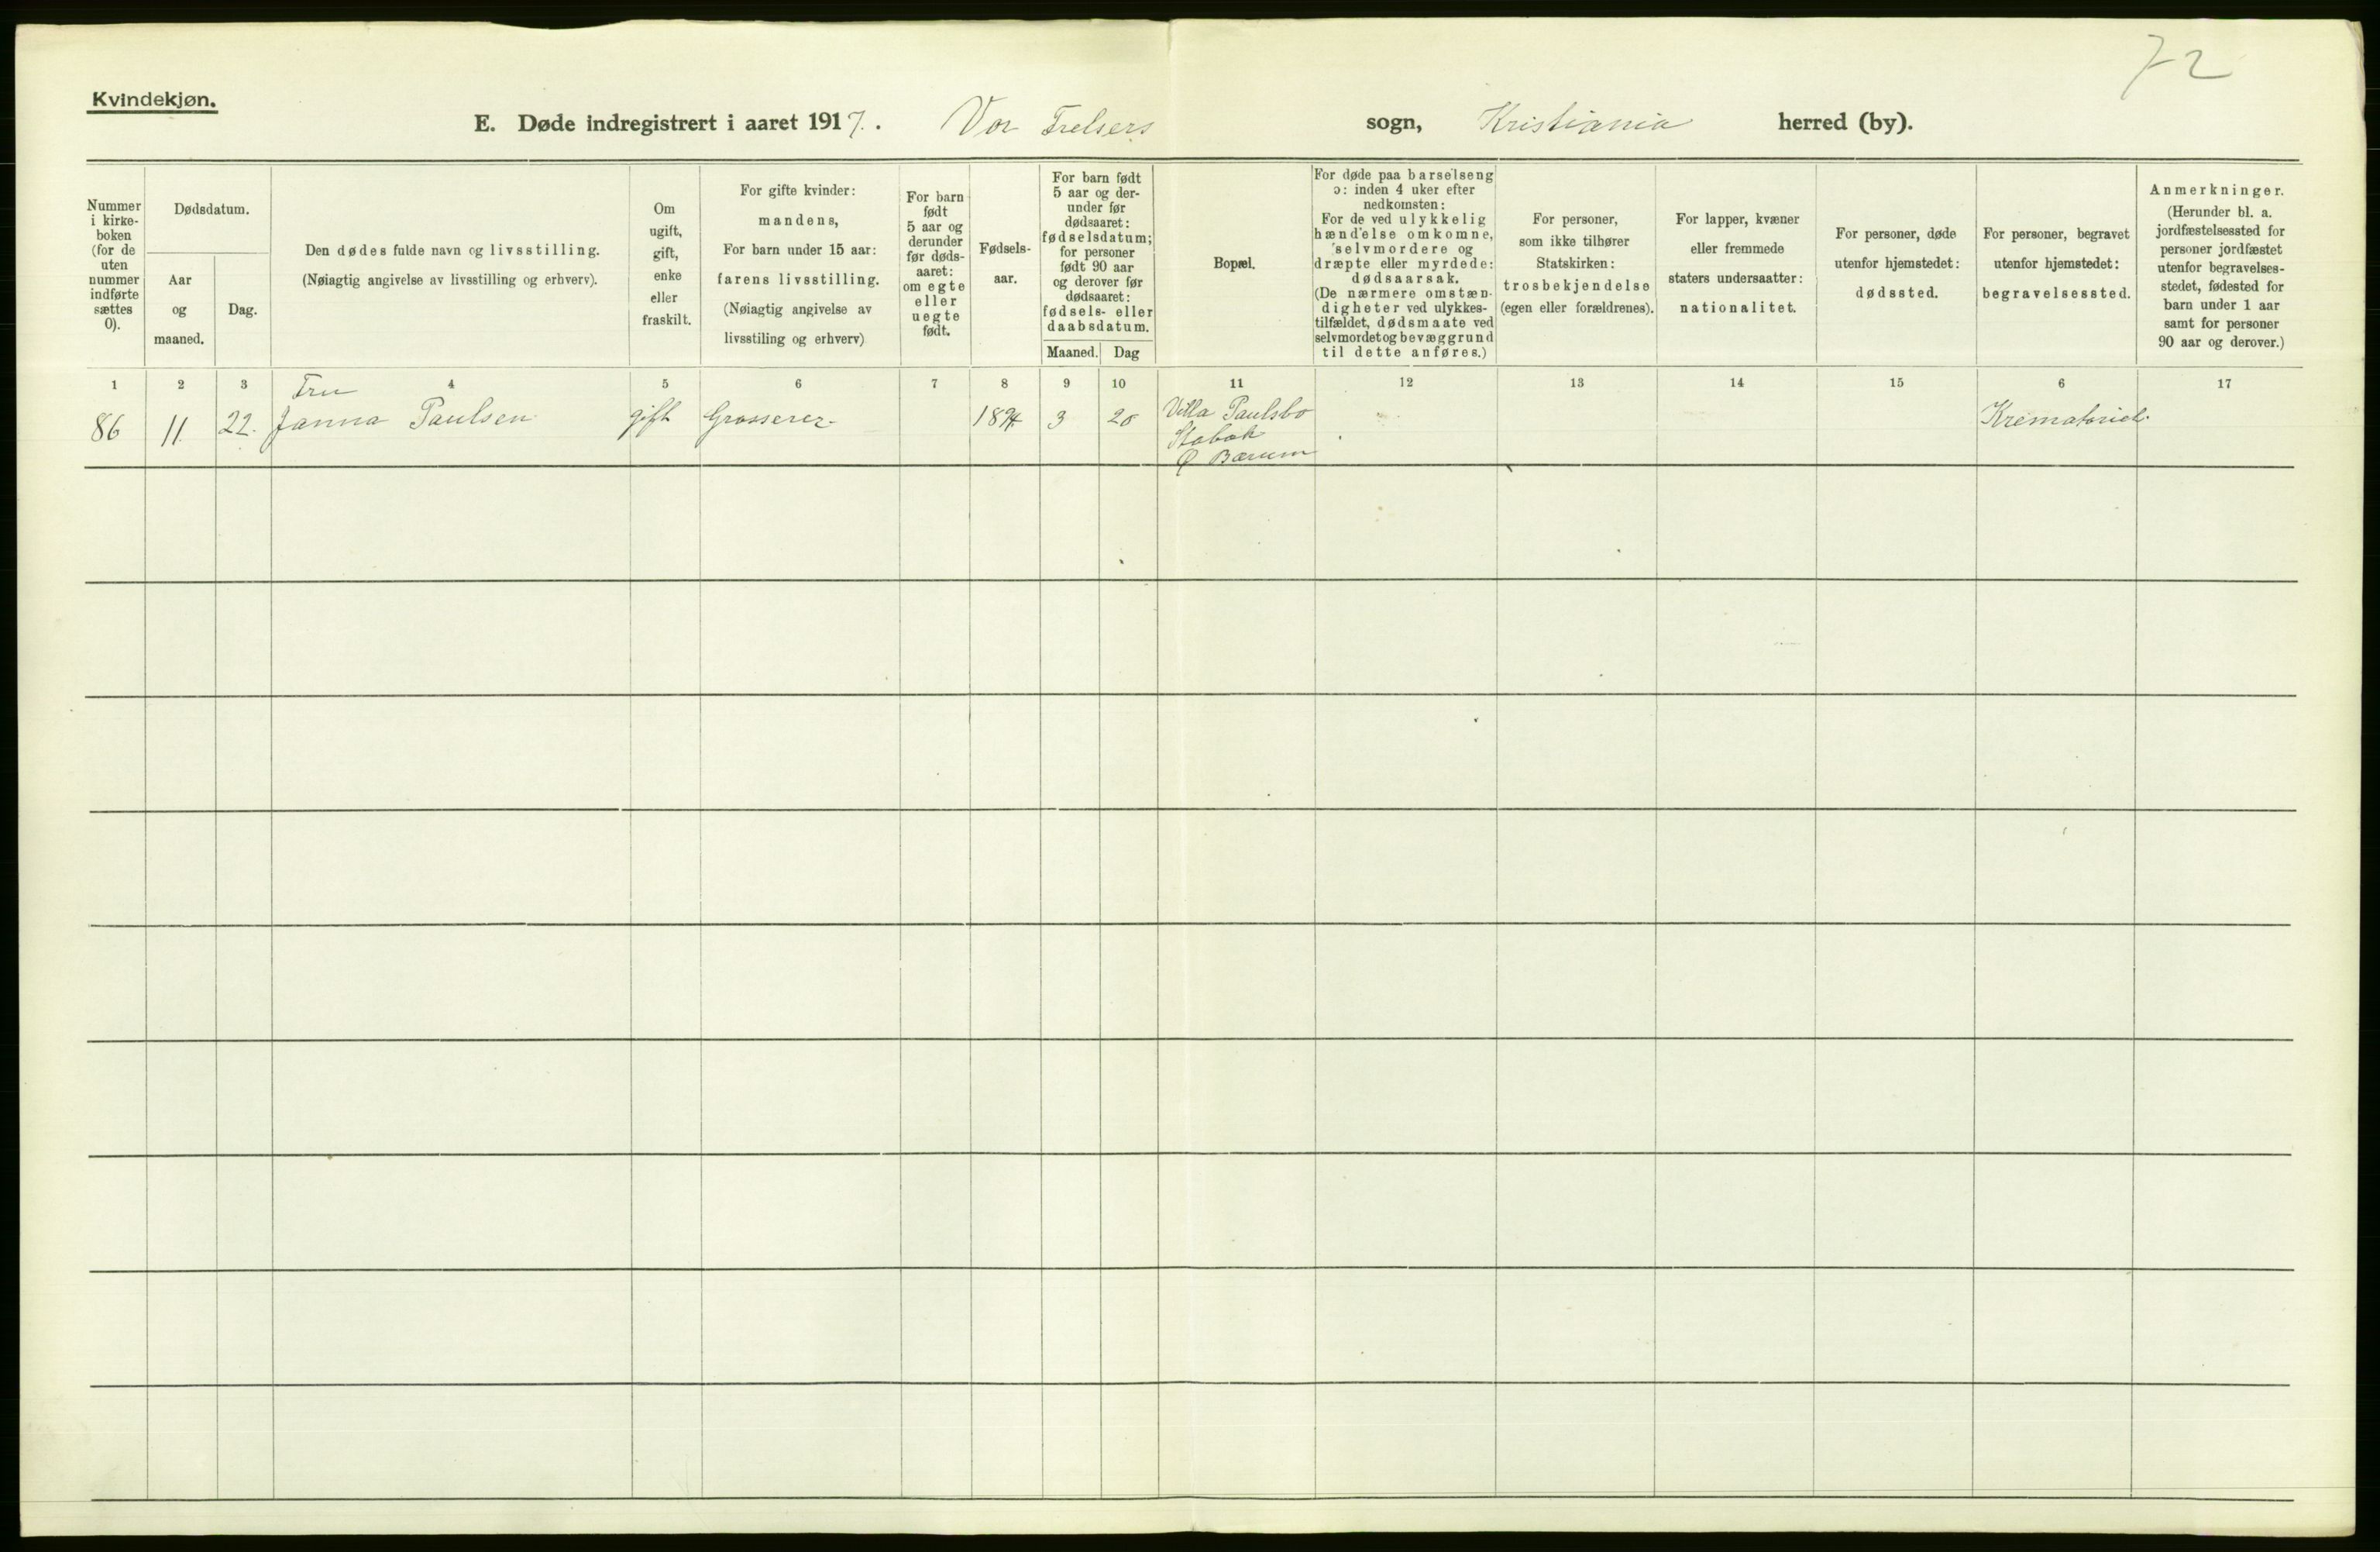 72
Kvindekjøn.
E. Døde indregistrert i aaret 1917. Vor Frelsers sogn, Kristiania herred (by).
Nummer
i kirke-
boken
(for de
uten
nummer
indførte
sættes
0).
Dødsdatum.
Aar
og
maaned.
Dag.
Den dødes fulde navn og livsstilling.
(Nøiagtig angivelse av livsstilling og erhverv).
Om
ugift,
gift,
enke
eller
fraskilt.
For gifte kvinder:
mandens,
For barn under 15 aar:
farens livsstilling.
(Nøiagtig angivelse av
livsstiling og erhverv)
For barn
født
5 aar og
derunder
før døds-
aaret:
om egte
eller
uegte
født.
Fødsels-
aar.
For barn født
5 aar og der-
under før
dødsaaret:
fødselsdatum;
for personer
født 90 aar
og derover før
dødsaaret:
fødsels- eller
daabsdatum.
Maaned. Dag
Bopæl.
For døde paa barselseng
ɔ: inden 4 uker efter
nedkomsten:
For de ved ulykkelig
hændelse omkomne,
selvmordere og
dræpte eller myrdede:
dødsaarsak.
(De nærmere omstæn-
digheter ved ulykkes-
tilfældet, dødsmaate ved
selvmordet og bevæggrund
til dette anføres.)
For personer,
som ikke tilhører
Statskirken:
trosbekjendelse
(egen eller forældrenes).
For lapper, kvæner
eller fremmede
staters undersaatter:
nationalitet.
For personer, døde
utenfor hjemstedet:
dødssted.
For personer, begravet
utenfor hjemstedet:
begravelsessted.
Anmerkninger.
(Herunder bl. a.
jordfæstelsessted for
personer jordfæstet
utenfor begravelses-
stedet, fødested for
barn under 1 aar
samt for personer
90 aar og derover.)
1 2 3 4 5 6 7 8 9 10 11 12 13 14 15 6 17
Fru
86 11. 22. Janna Paulsen gift Grosserer. 3 20 Villa Paulsbo Krematoriet.
Stabæk
Ø Bærum